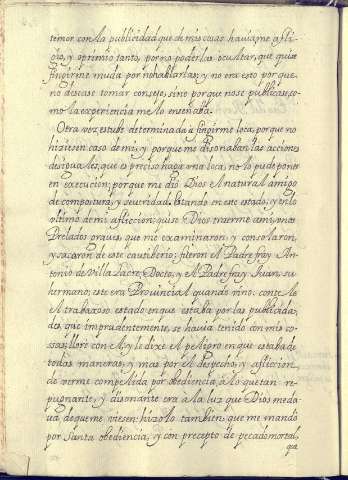 temor con la publicidad que de mis cosas havia, me afli-
gio, y oprimio tanto, por no poderlas ocultar, que quise
fingirme muda por no hablarlas; y no era esto por que
no desease tomar consejo, sino porque no se publicase, co-
mo la experiencia me lo enseñaba.
Otra vez estube determinada a fingirme loca, porque no
hiziesen caso de mi; y porque me disonaban las acciones
desiguales, que es preciso haga una loca, no lo pude poner
en execucion; porque me dio Dios el natural amigo
de compostura, y severidad. Estando en este estado, y en lo
ultimo de mi afliccion; quiso Dios traerme a mi, unos
Prelados graves, que me examinaron, y consolaron,
y sacaron de este cautiberio: fueron el Padre fray An-
tonio de Villa Lacre, Docto, y el Padre fray Juan, su
hermano; este era Provincial quando vino: contele
el trabaxoso estado en que estaba por las publicida-
des, que imprudentemente, se havia tenido con mis co-
sas; llore con el, y le dixe el peligro en que estaba de
todas maneras, y mas por el despecho, y afliccion,
de verme compelida por obediencia, a lo que tan re-
pugnante, y disonante era a la luz que Dios me da
va de que me viesen: hizolo tambien, que me mando
por santa obediencia, y con precepto de pecado mortal,
que